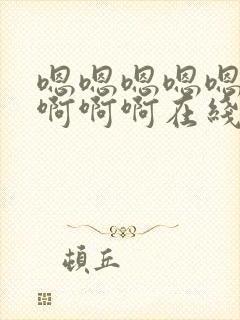 嗯嗯嗯嗯嗯
啊啊啊在线
顿丘